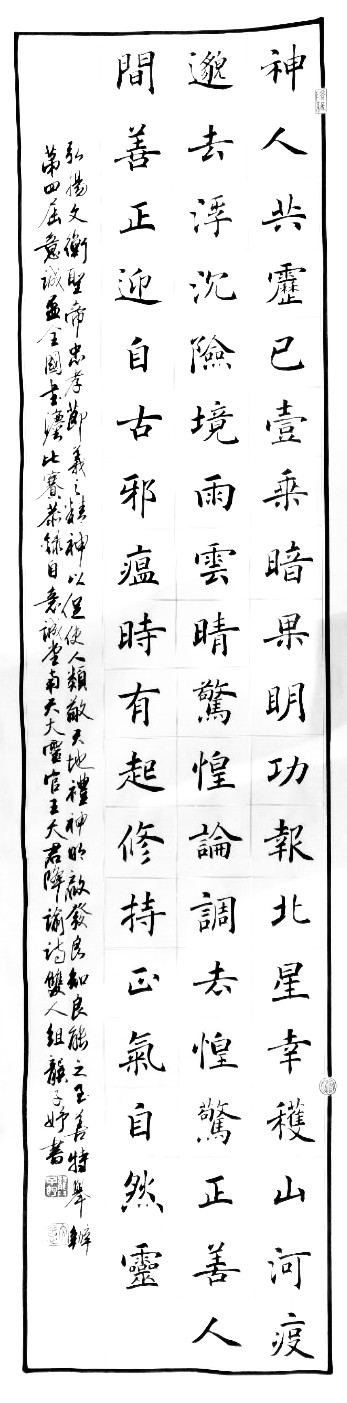 神人共靂已壹乘暗果明功報北星幸穫山河疫
邈去浮沉險境雨雲晴驚惶論調去惶驚正善人
間善正迎自古邪瘟時有起修持正氣自然靈
弘揚文衡聖帝忠孝節義之精神以促使人類敬天地禮神明啟發良知良能之至善特舉辦
第四屆意誠盃全國書灋比賽恭錄自意誠堂南天大靈官王天君降諭詩雙人組子妤書